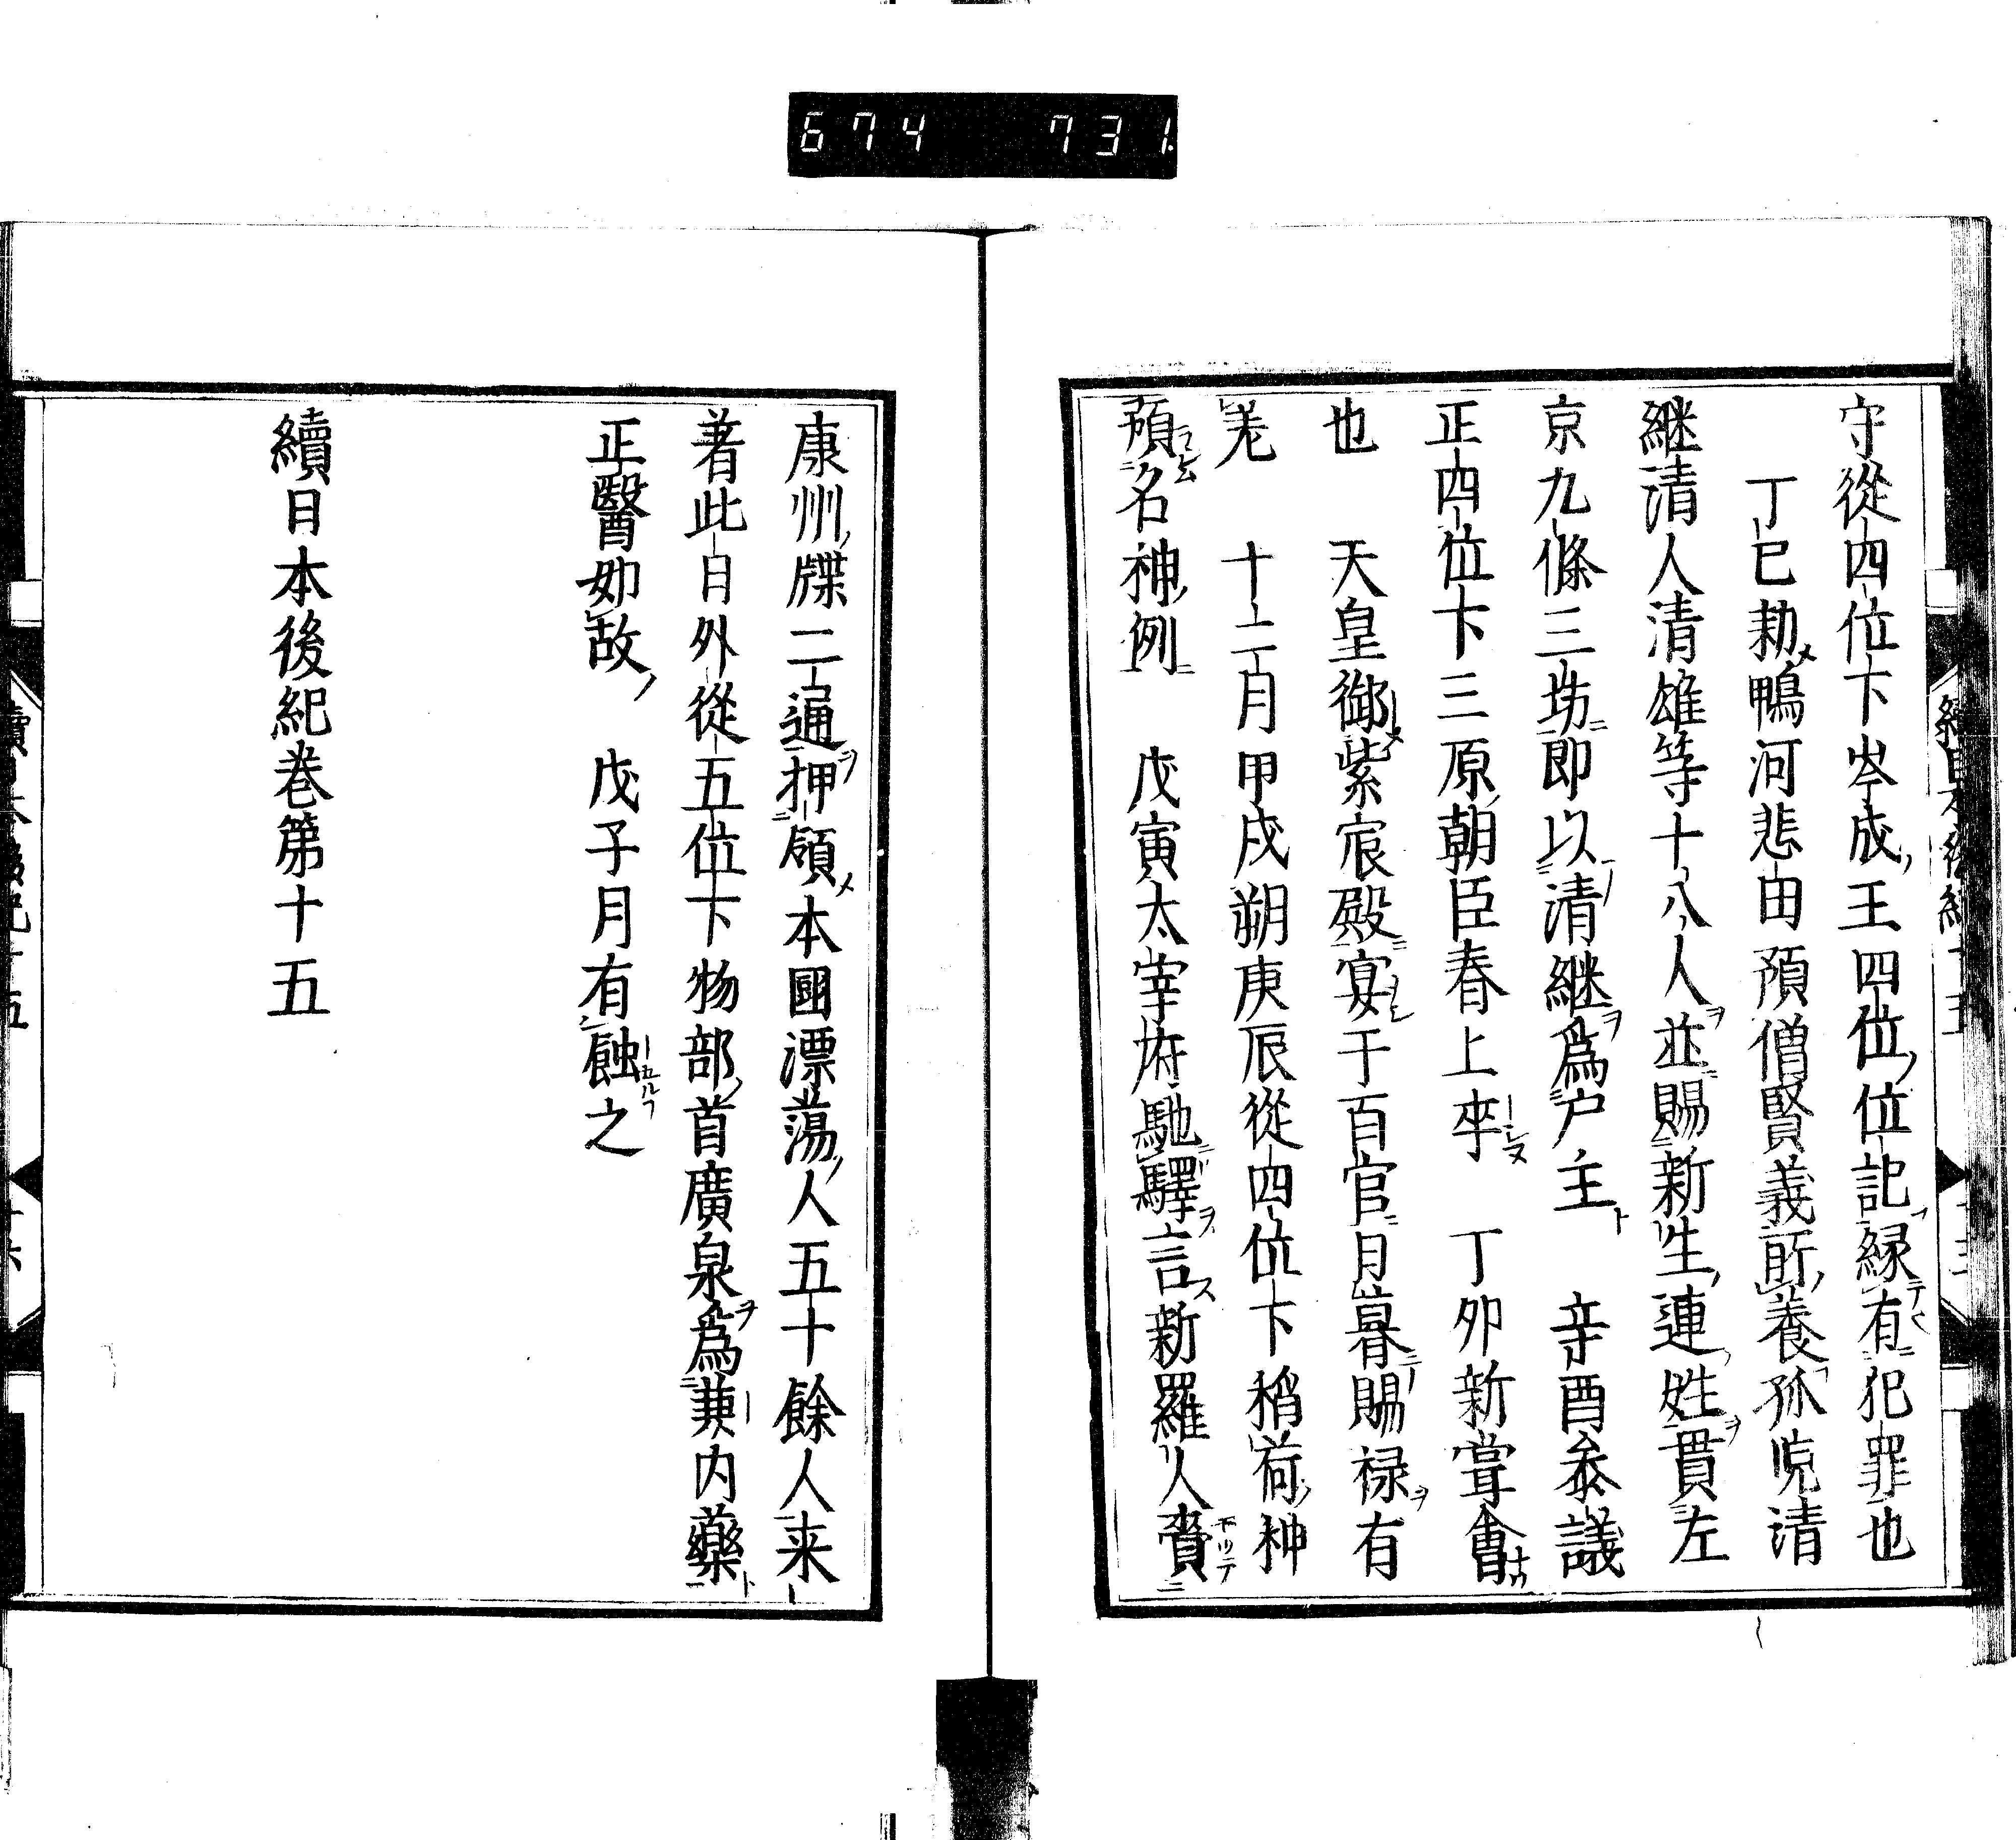 674 731
守從四位下岑成王四位位記縁有犯罪也
丁巳勅鴨河悲田預僧賢義所養孤児清
継清人清雄等十八人並賜新生連姓貫左
京九條三坊即以清継爲户主 辛酉叅議
正四位下三原朝臣春上卒 丁卯新甞會
也 天皇御紫宸殿宴于百官日暮賜禄有
差 十二月甲戌朔庚辰從四位下稲荷神
預名神例 戊寅太宰府馳驛言新羅人賷
康州牒二通押領本國漂蕩人五十餘人来
著此日外從五位下物部首廣泉爲兼内藥
正醫如故 戊子月有蝕之
續日本後紀巻第十五